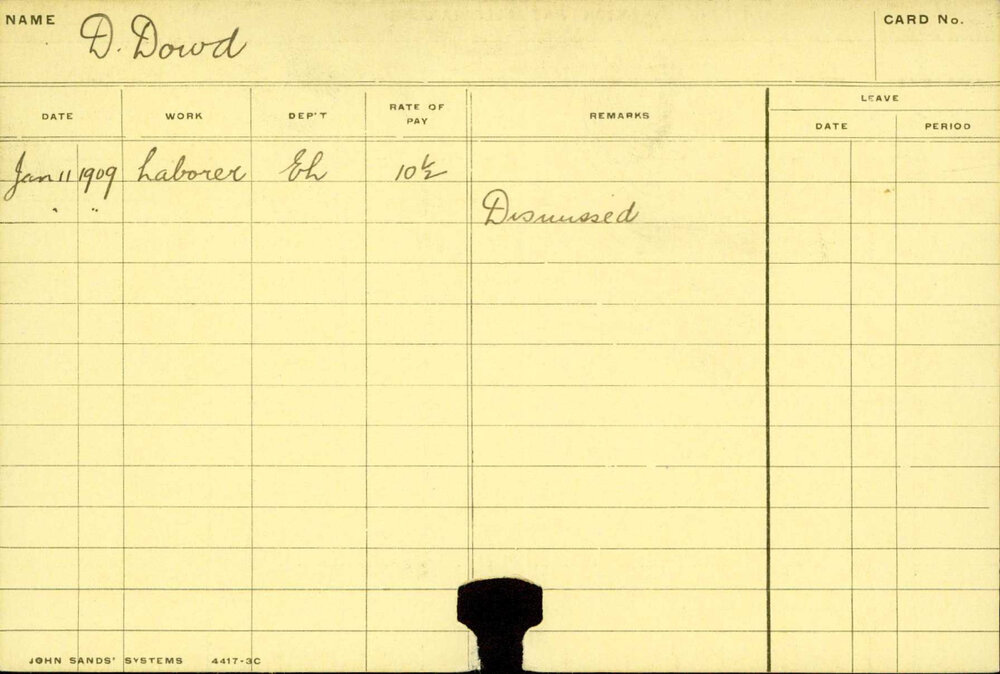 NAME D. Dowd CARD No.
DATE WORK DEP'T RATE OF PAY REMARKS LEAVE
DATE PERIOD
Jan 11 1909 Laborer Eh 10½
" " Dismissed
JOHN SANDS' SYSTEMS 4417-3C